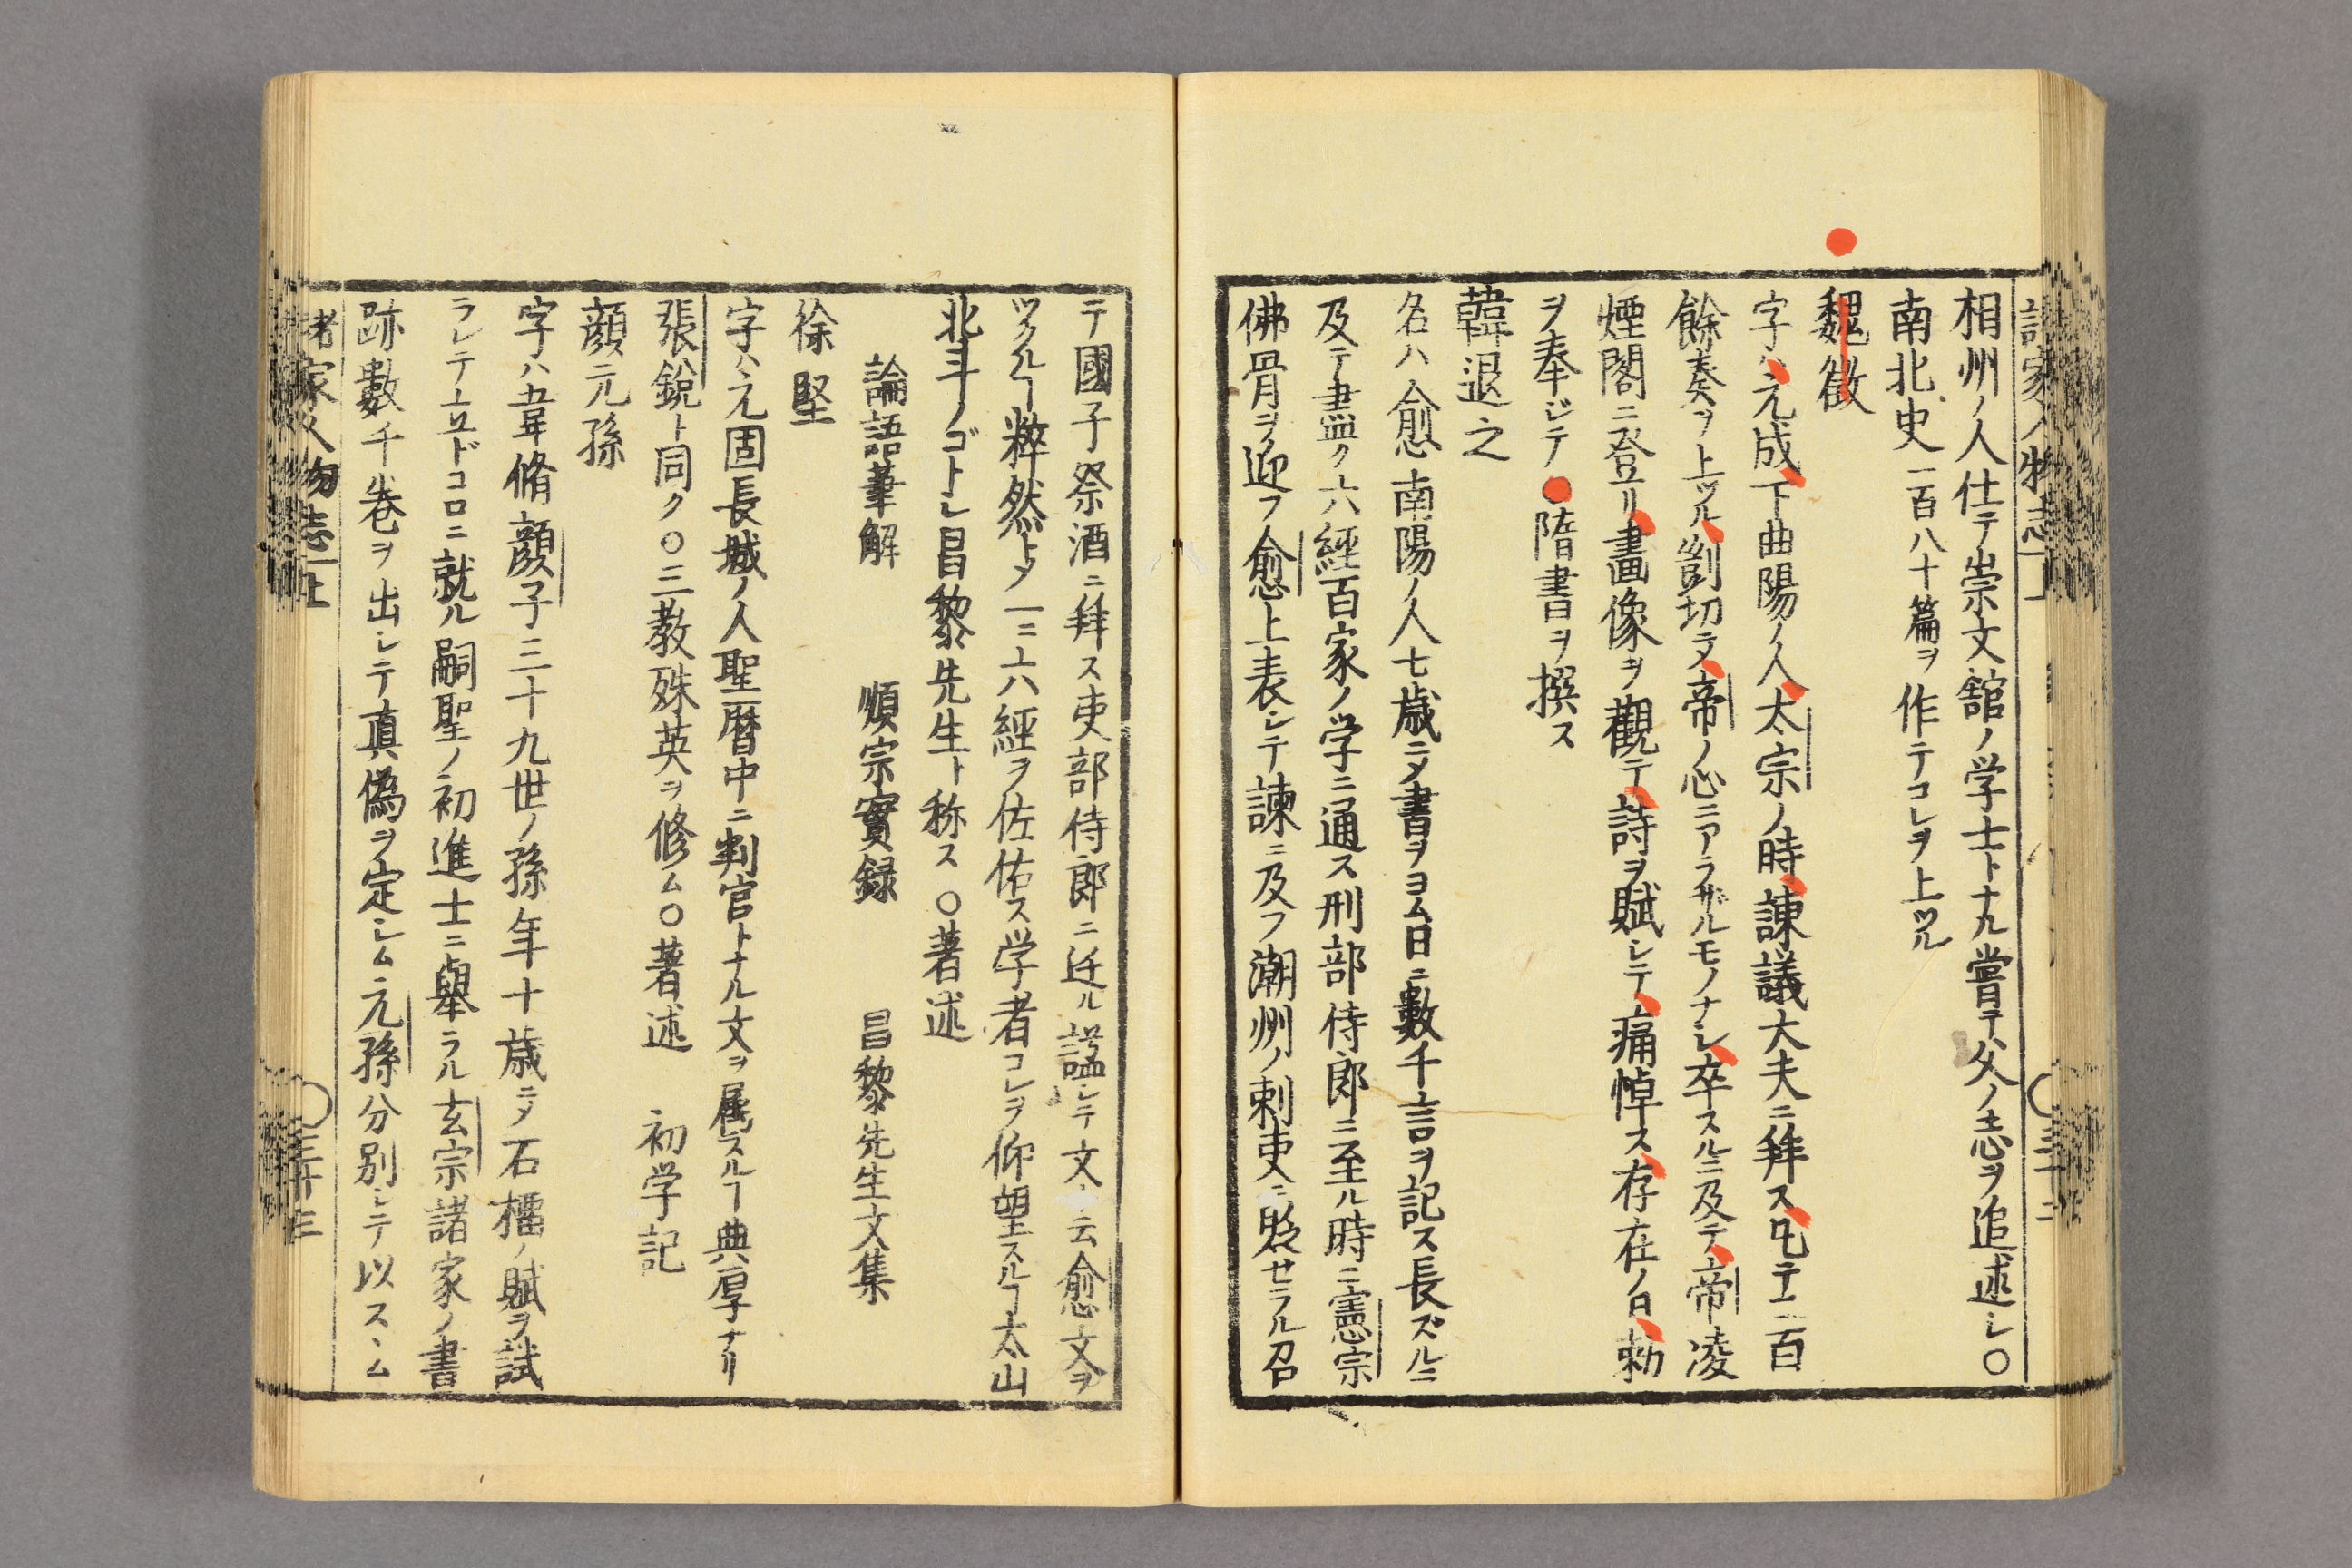 諸家人物志上
三十二
相州ノ人仕テ崇文舘ノ学士トナル嘗テ父ノ志ヲ追述シ〇
南北史一百八十篇ヲ作テコレヲ上ツル
魏徴
字ハ元成下曲陽ノ人太宗ノ時諫議大夫ニ拜ス凡テ二百
餘奏ヲ上ツル剴切ニシテ帝ノ心ニアラザルモノナシ卒スルニ及テ帝凌
煙閣ニ登リ畫像ヲ觀テ詩ヲ賦シテ痛悼ス存在ノ日勅
ヲ奉ジテ隋書ヲ撰ス
韓退之
名ハ愈南陽ノ人七歳ニメ書ヲヨム日ニ數千言ヲ記ス長ズルニ
及テ盡ク六經百家ノ学ニ通ス刑部侍郎ニ至ル時ニ憲宗
佛骨ヲ迎フ愈上表シテ諫ニ及フ潮州ノ刺吏ニ貶セラル召
テ國子祭酒ニ拜ス吏部侍郎ニ迁ル謚シテ文ト云愈文ヲ
ツクルヿ粹然トメ一ニ六經ヲ佐佑ス学者コレヲ仰望スルヿ太山
北斗ノゴトシ昌黎先生ト称ス〇著述
論語筆解 順宗實録 昌黎先生文集
徐堅
字ハ元固長城ノ人聖暦中ニ判官トナル文ヲ属スルヿ典厚ナリ
張銳ト同ク〇三教殊英ヲ修ム〇著述 初学記
顔元孫
字ハ聿脩顔子三十九世ノ孫年十歳ニメ石櫺ノ賦ヲ試
ラレテ立ドコロニ就ル嗣聖ノ初進士ニ舉ラル玄宗諸家ノ書
跡數千卷ヲ出シテ真偽ヲ定シム元孫分別シテ以スヽム
諸家人物志上
三十三